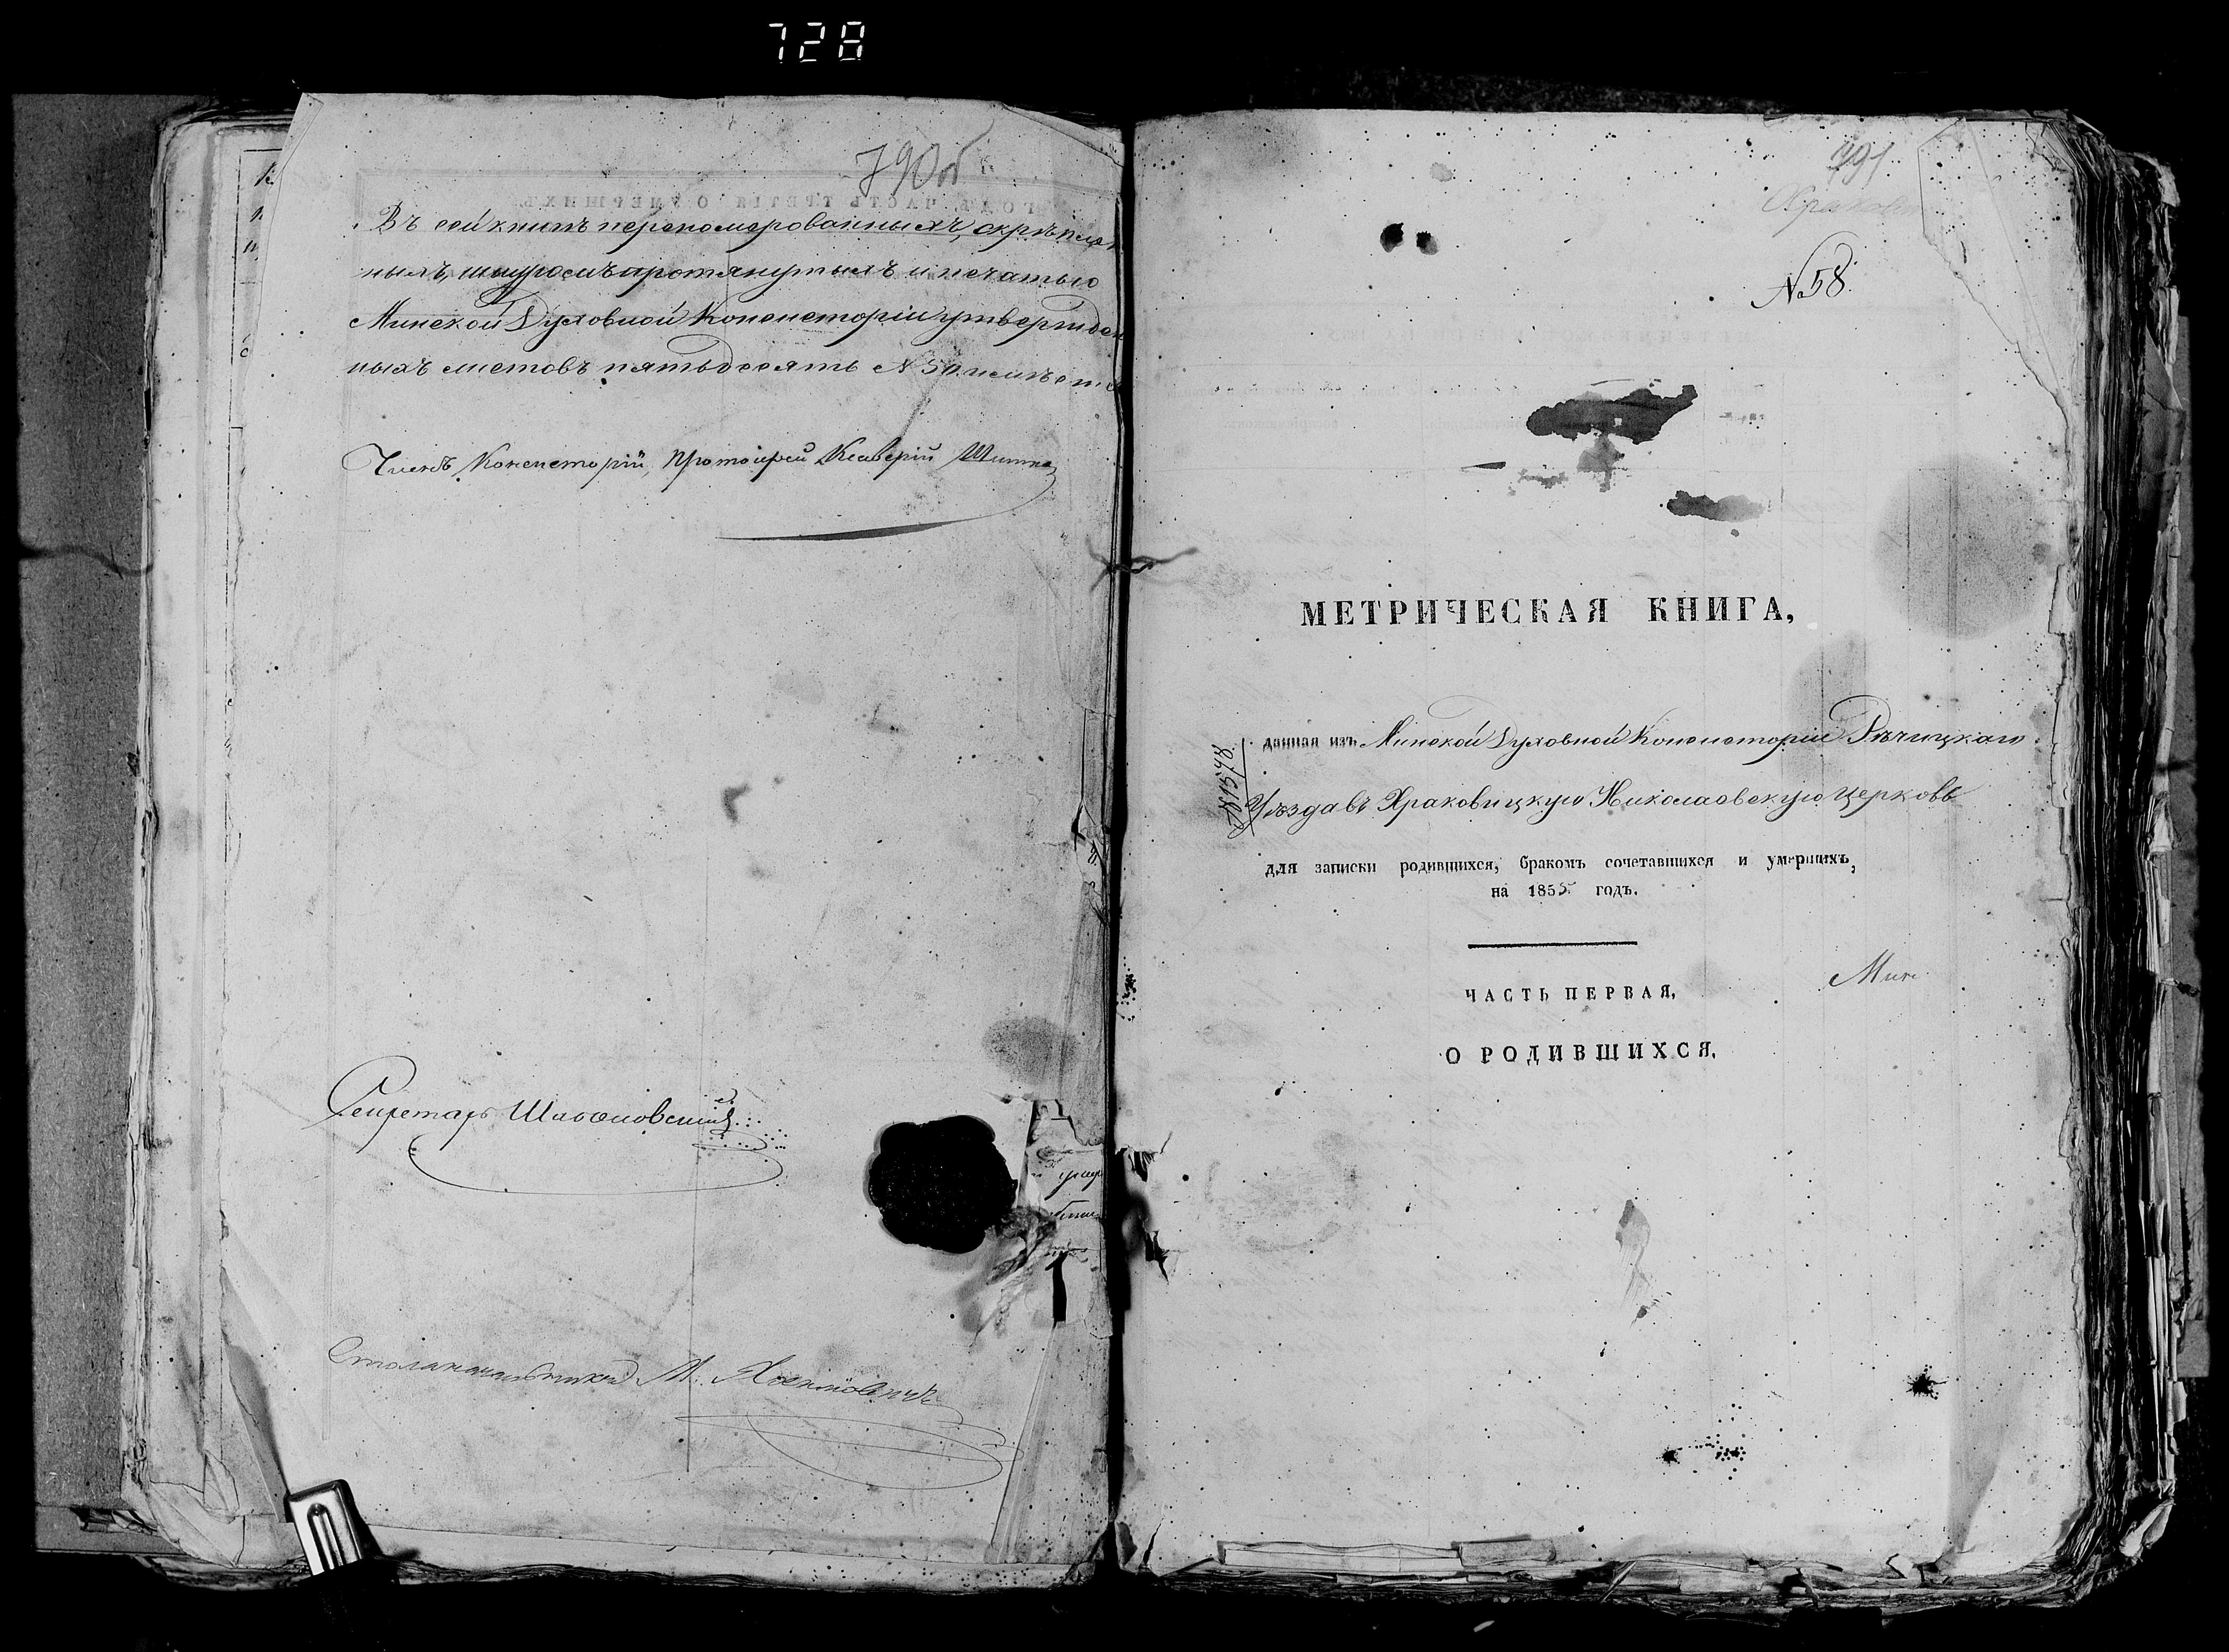 728
790об
Въ сей книгѣ перенумерованныхъ, скрѣплен
ныхъ, шнуромъ протянутыхъ и печатью
Минской Духовной Консисторіи утвержден
ныхъ листовъ пятьдесятъ N 50
Членъ Консисторіи, Протоіерей Ксаверій
Секретарь
Столоначальникъ М.
791
N 58.
МЕТРИЧЕСКАЯ КНИГА,
данная изъ Минской Духовной Консисторіи Рѣчицкаго
Уѣзда въ Храковицкую Николаевскую церковь
для записки родившихся, бракомъ сочетавшихся и умершихъ,
на 1855 годъ.
Мин
ЧАСТЬ ПЕРВАЯ,
О РОДИВШИХСЯ.